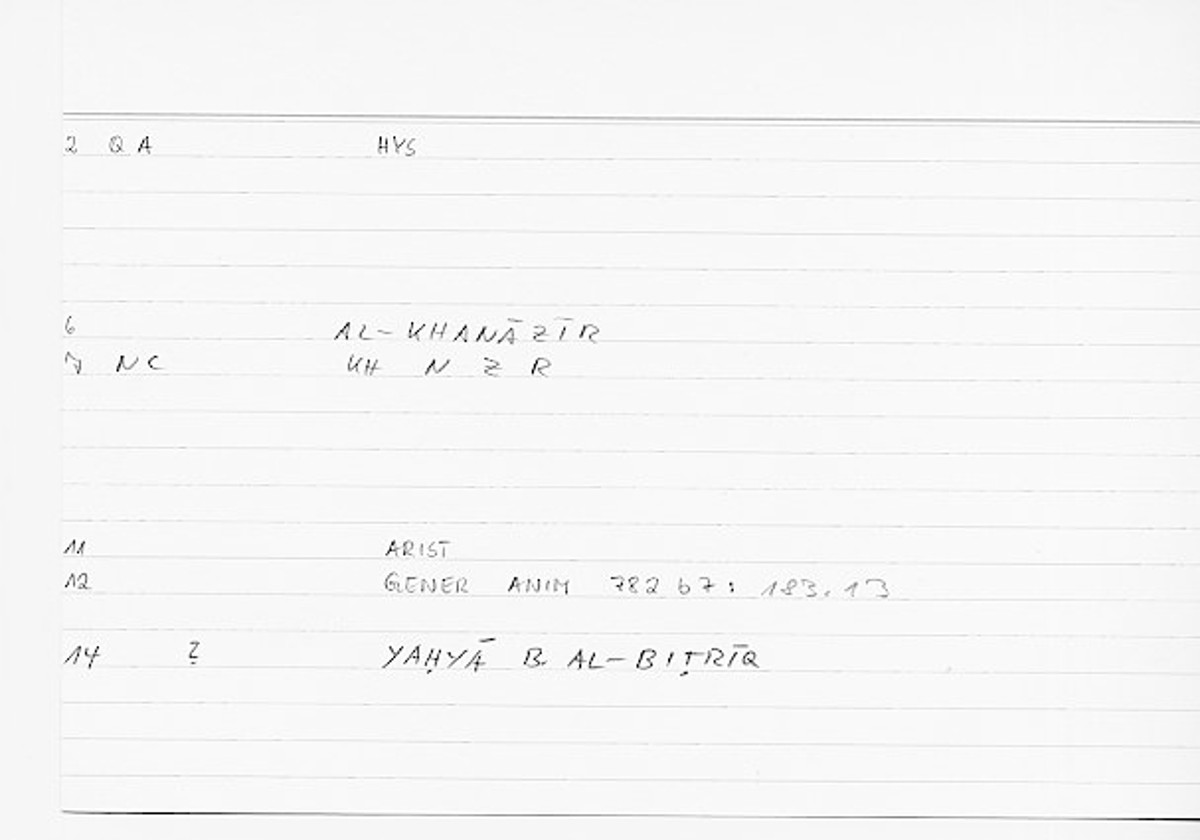 2 Q A HYS
6 AL-KHANĀZĪR
7 NC KH N Z R
11 ARIST
12 GENER ANIM 782 b7: 183.13
14 ? YAḤYĀ B AL-BIṬRĪQ